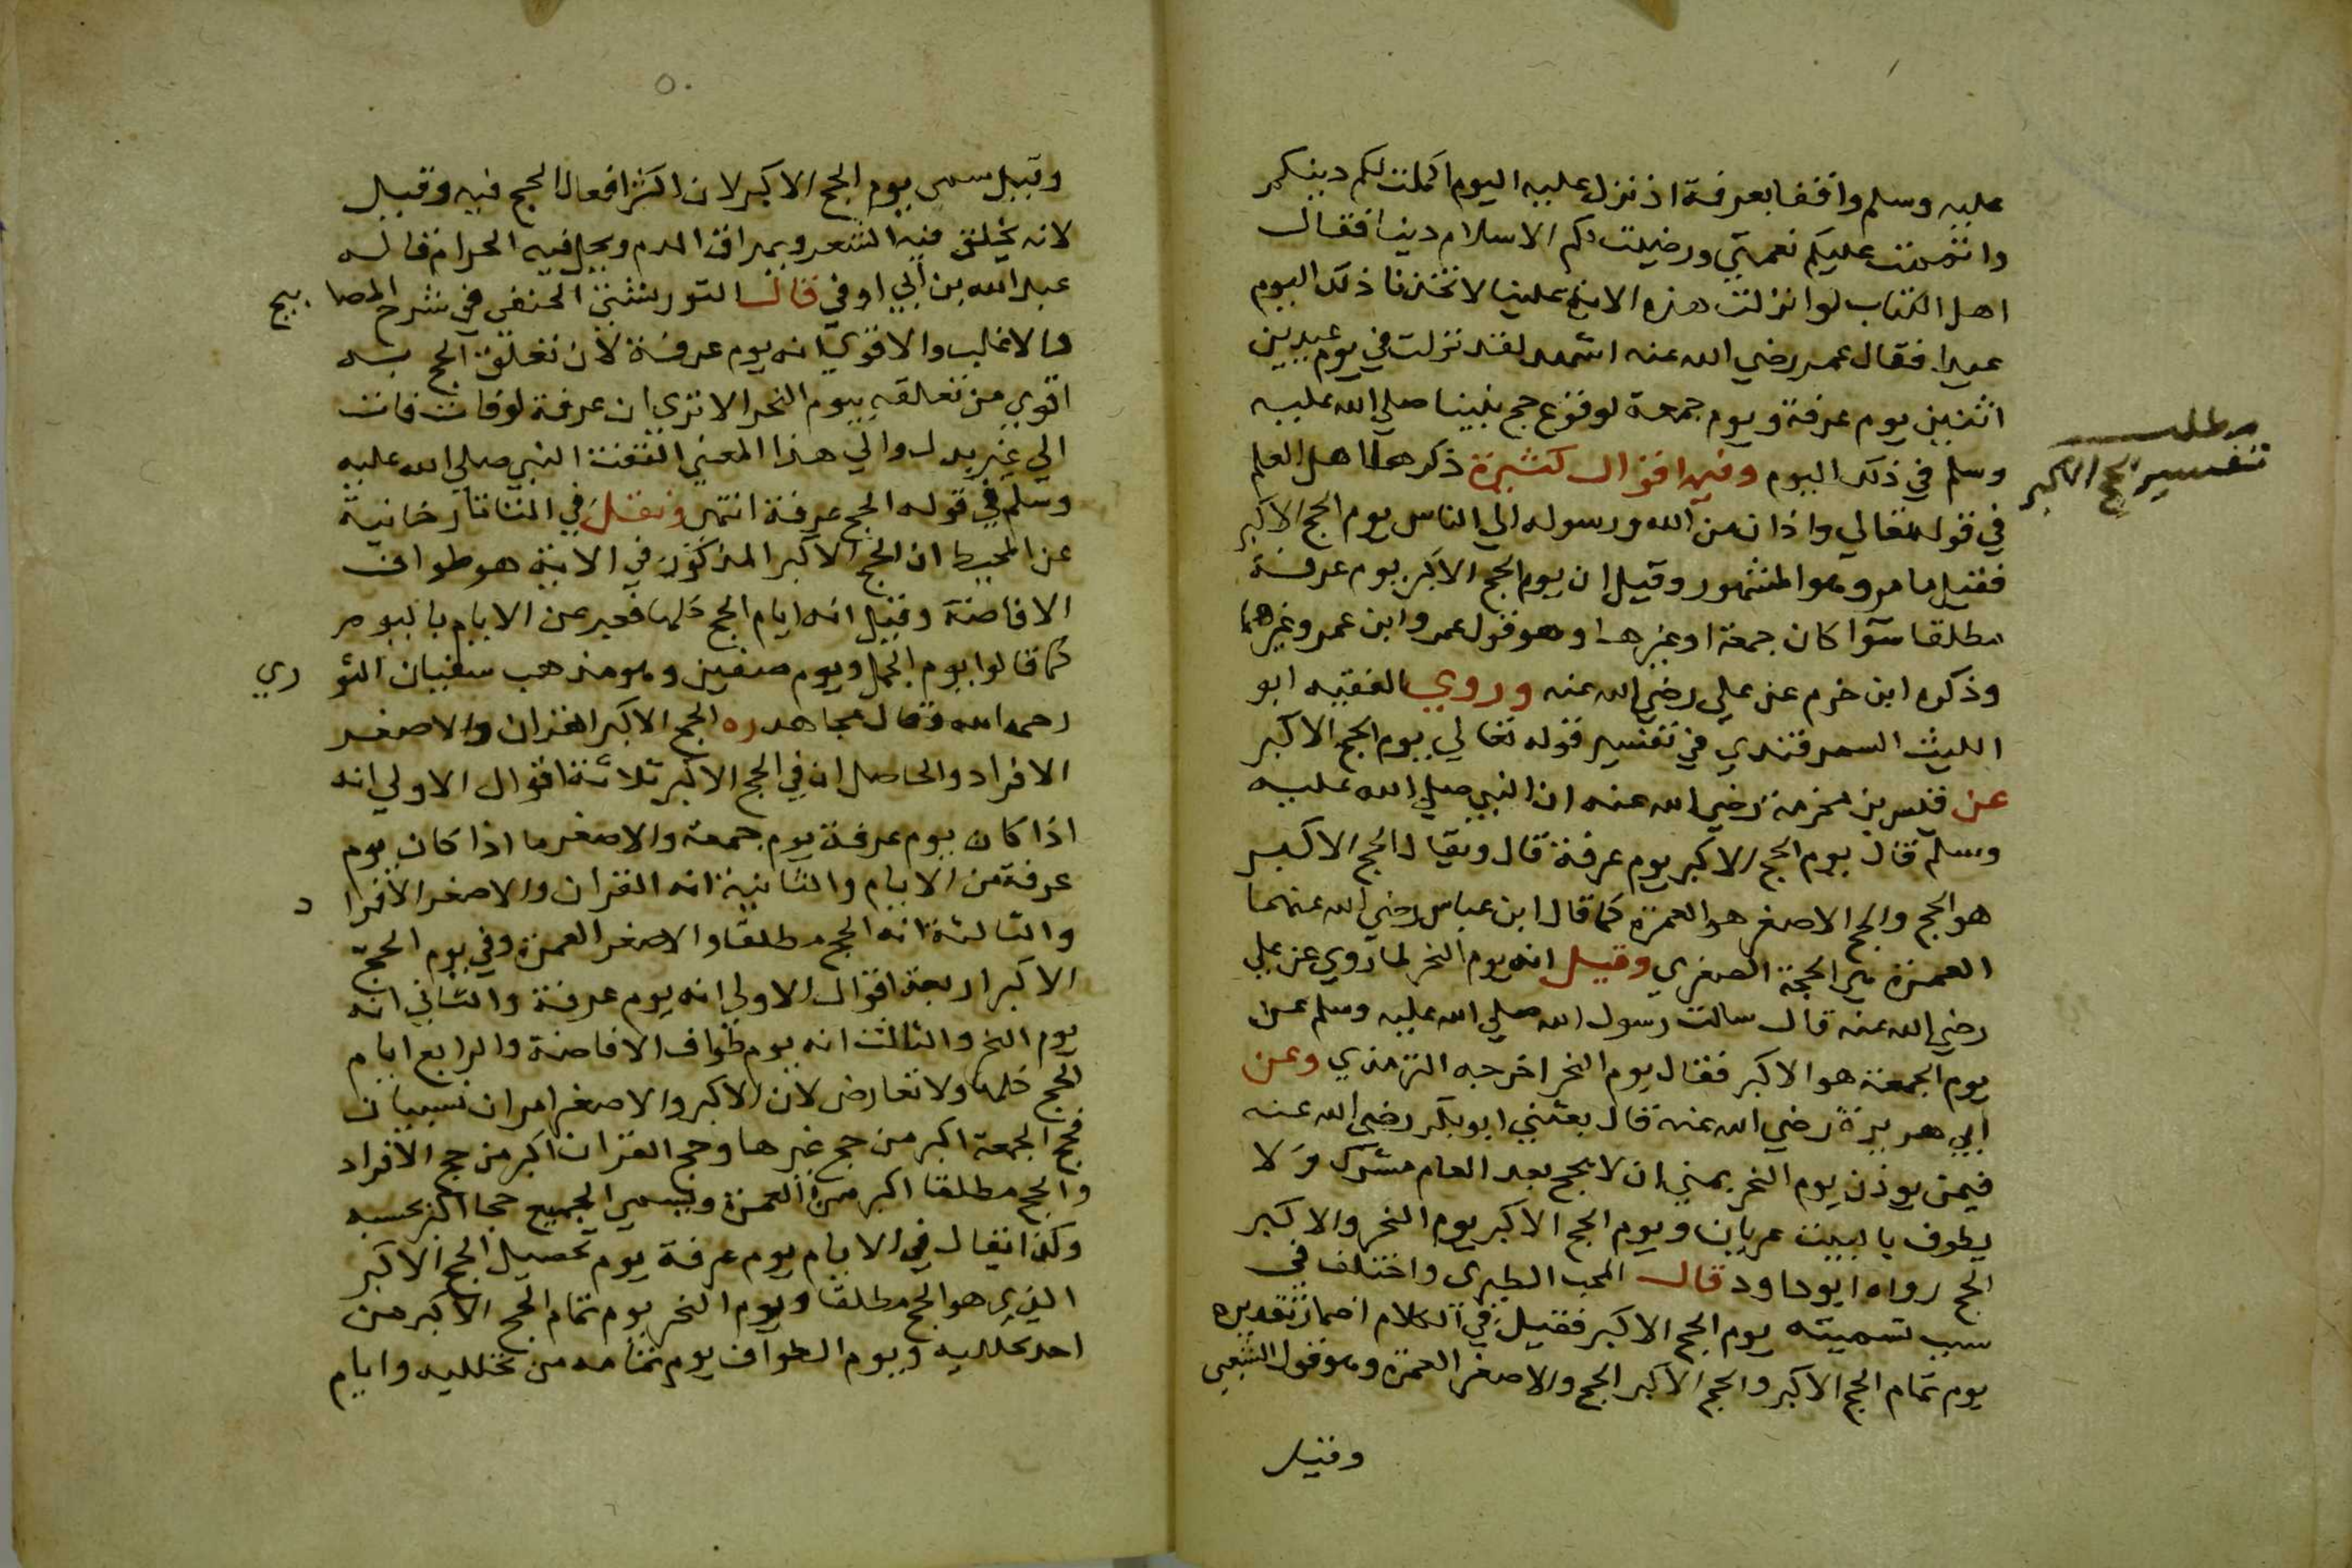 عليه وسلم واقفا بعرفة اذ نزل عليه اليوم اكملت لكم دينكم
واتممت عليكم نعمتي ورضيت لكم الاسلام دينا فقال
اهل الكتاب لو انزلت هذه الاية علينا لاتخذنا ذلك اليوم
عيدا فقال عمر رضي الله عنه اشهد لقد نزلت في يوم عيدين
اثنين يوم عرفة ويوم جمعة لوقوع حج نبينا صلي الله عليه
وسلم في ذلك اليوم وفيه اقوال كثيرة ذكرها اهل العلم
مطلب
تفسير الحج الاكبر
في قوله تعالي واذان من الله ورسوله الي الناس يوم الحج الاكبر
فقيل ما مر وهو المشهور وقيل ان يوم الحج الاكبر يوم عرفة
مطلقا سوآ كان جمعة او غيرها وهو قول عمر وابن عمر وغيرهما
وذكره ابن حزم عن علي رضي الله عنه وروي الفقيه ابو
الليث السمرقندي في تفسير قوله تعالي يوم الحج الاكبر
عن قيس بن مخرمة رضي الله عنه ان النبي صلي الله عليه
وسلم قال يوم الحج الاكبر يوم عرفة قال ويقال الحج الاكبر
هو الحج والحج الاصغر هو العمرة كما قال ابن عباس رضي الله عنهما
العمرة هي الحجة الصغري وقيل انه يوم النحر لما روي عن علي
رضي الله عنه قال سالت رسول الله صلي الله عليه وسلم عن
يوم الجمعة هو الاكبر فقال يوم النحر اخرجه الترمذي وعن
ابي هريرة رضي الله عنه قال بعثني ابو بكر رضي الله عنه
فيمن يوذن يوم النحر بمني ان لا يحج بعد العام مشرك ولا
يطوف بالبيت عريان ويوم الحج الاكبر يوم النحر والاكبر
الحج رواه ابو داود قال المحب الطبري واختلف في
سبب تسميته يوم الحج الاكبر فقيل في الكلام اضمار تقديره
يوم تمام الحج الاكبر والحج الاكبر الحج والاصغر العمرة وهو قول الشعبي
وقيل
٥٠
وقيل سمي يوم الحج الاكبر لان اكثر افعال الحج فيه وقيل
لانه يحلق فيه الشعر ويهراق الدم ويحل فيه الحرام قاله
عبد الله بن ابي اوفي قال التوربشتي الحنفي في شرح المصابيح
والاغلب والاقوي انه يوم عرفة لان تعلق الحج به
اقوي من تعلقه بيوم النحر الا تري ان عرفة لو فات فات
الي غير بدل والي هذا المعني التفت النبي صلي الله عليه
وسلم في قوله الحج عرفة انتهي ونقل في التتاتارخانية
عن المحيط ان الحج الاكبر المذكور في الاية هو طواف
الافاضة وقيل انه ايام الحج كلها فعبر عن الايام باليوم
كما قالوا يوم الجمل ويوم صفين وهو مذهب سفيان الثوري
رحمه الله وقال مجاهد ره الحج الاكبر القران والاصغر
الافراد والحاصل ان في الحج الاكبر ثلاثة اقوال الاولي انه
اذا كان يوم عرفة يوم جمعة والاصغر ما اذا كان يوم
عرفة من الايام والثانية انه القران والاصغر الافراد
والثالثة انه الحج مطلقا والاصغر العمرة وفي يوم الحج
الاكبر اربعة اقوال الاولي انه يوم عرفة والثاني انه
يوم النحر والثالث انه يوم طواف الافاضة والرابع ايام
الحج كلها ولا تعارض لان الاكبر والاصغر امران نسبيان
فحج الجمعة اكبر من حج غيرها وحج القران اكبر من حج الافراد
والحج مطلقا اكبر من العمرة ويسمي الجميع حجا اكبر بحسبه
وكذا يقال في الايام يوم عرفة يوم تحصيل الحج الاكبر
الذي هو الحج مطلقا ويوم النحر يوم تمام الحج الاكبر من
احد تحلليه ويوم الطواف يوم تمامه من تحلليه وايام